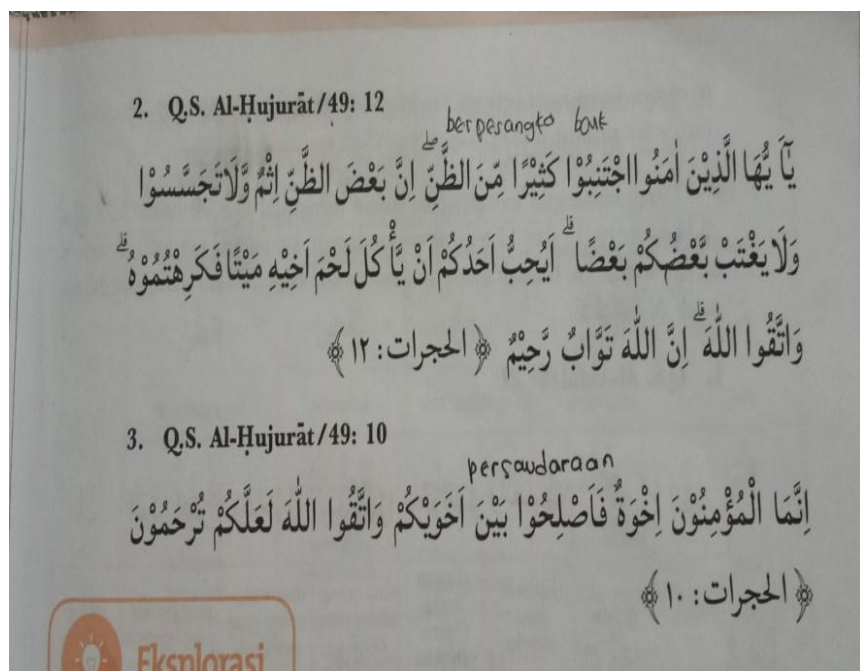 2. Q.S. Al-Ḥujurāt/49: 12
berpesangko baik
يٰٓاَ يُّهَا الَّذِيْنَ اٰمَنُوا اجْتَنِبُوْا كَثِيْرًا مِّنَ الظَّنِّۖ اِنَّ بَعْضَ الظَّنِّ اِثْمٌ وَّلَا تَجَسَّسُوْا
وَلَا يَغْتَبْ بَّعْضُكُمْ بَعْضًاۗ اَيُحِبُّ اَحَدُكُمْ اَنْ يَّأْكُلَ لَحْمَ اَخِيْهِ مَيْتًا فَكَرِهْتُمُوْهُۗ
وَاتَّقُوا اللّٰهَۗ اِنَّ اللّٰهَ تَوَّابٌ رَّحِيْمٌ ﴿الحجرات: ١٢﴾
3. Q.S. Al-Ḥujurāt/49: 10
persaudaraan
اِنَّمَا الْمُؤْمِنُوْنَ اِخْوَةٌ فَاَصْلِحُوْا بَيْنَ اَخَوَيْكُمْ وَاتَّقُوا اللّٰهَ لَعَلَّكُمْ تُرْحَمُوْنَ
﴿الحجرات: ١٠﴾
Eksplorasi